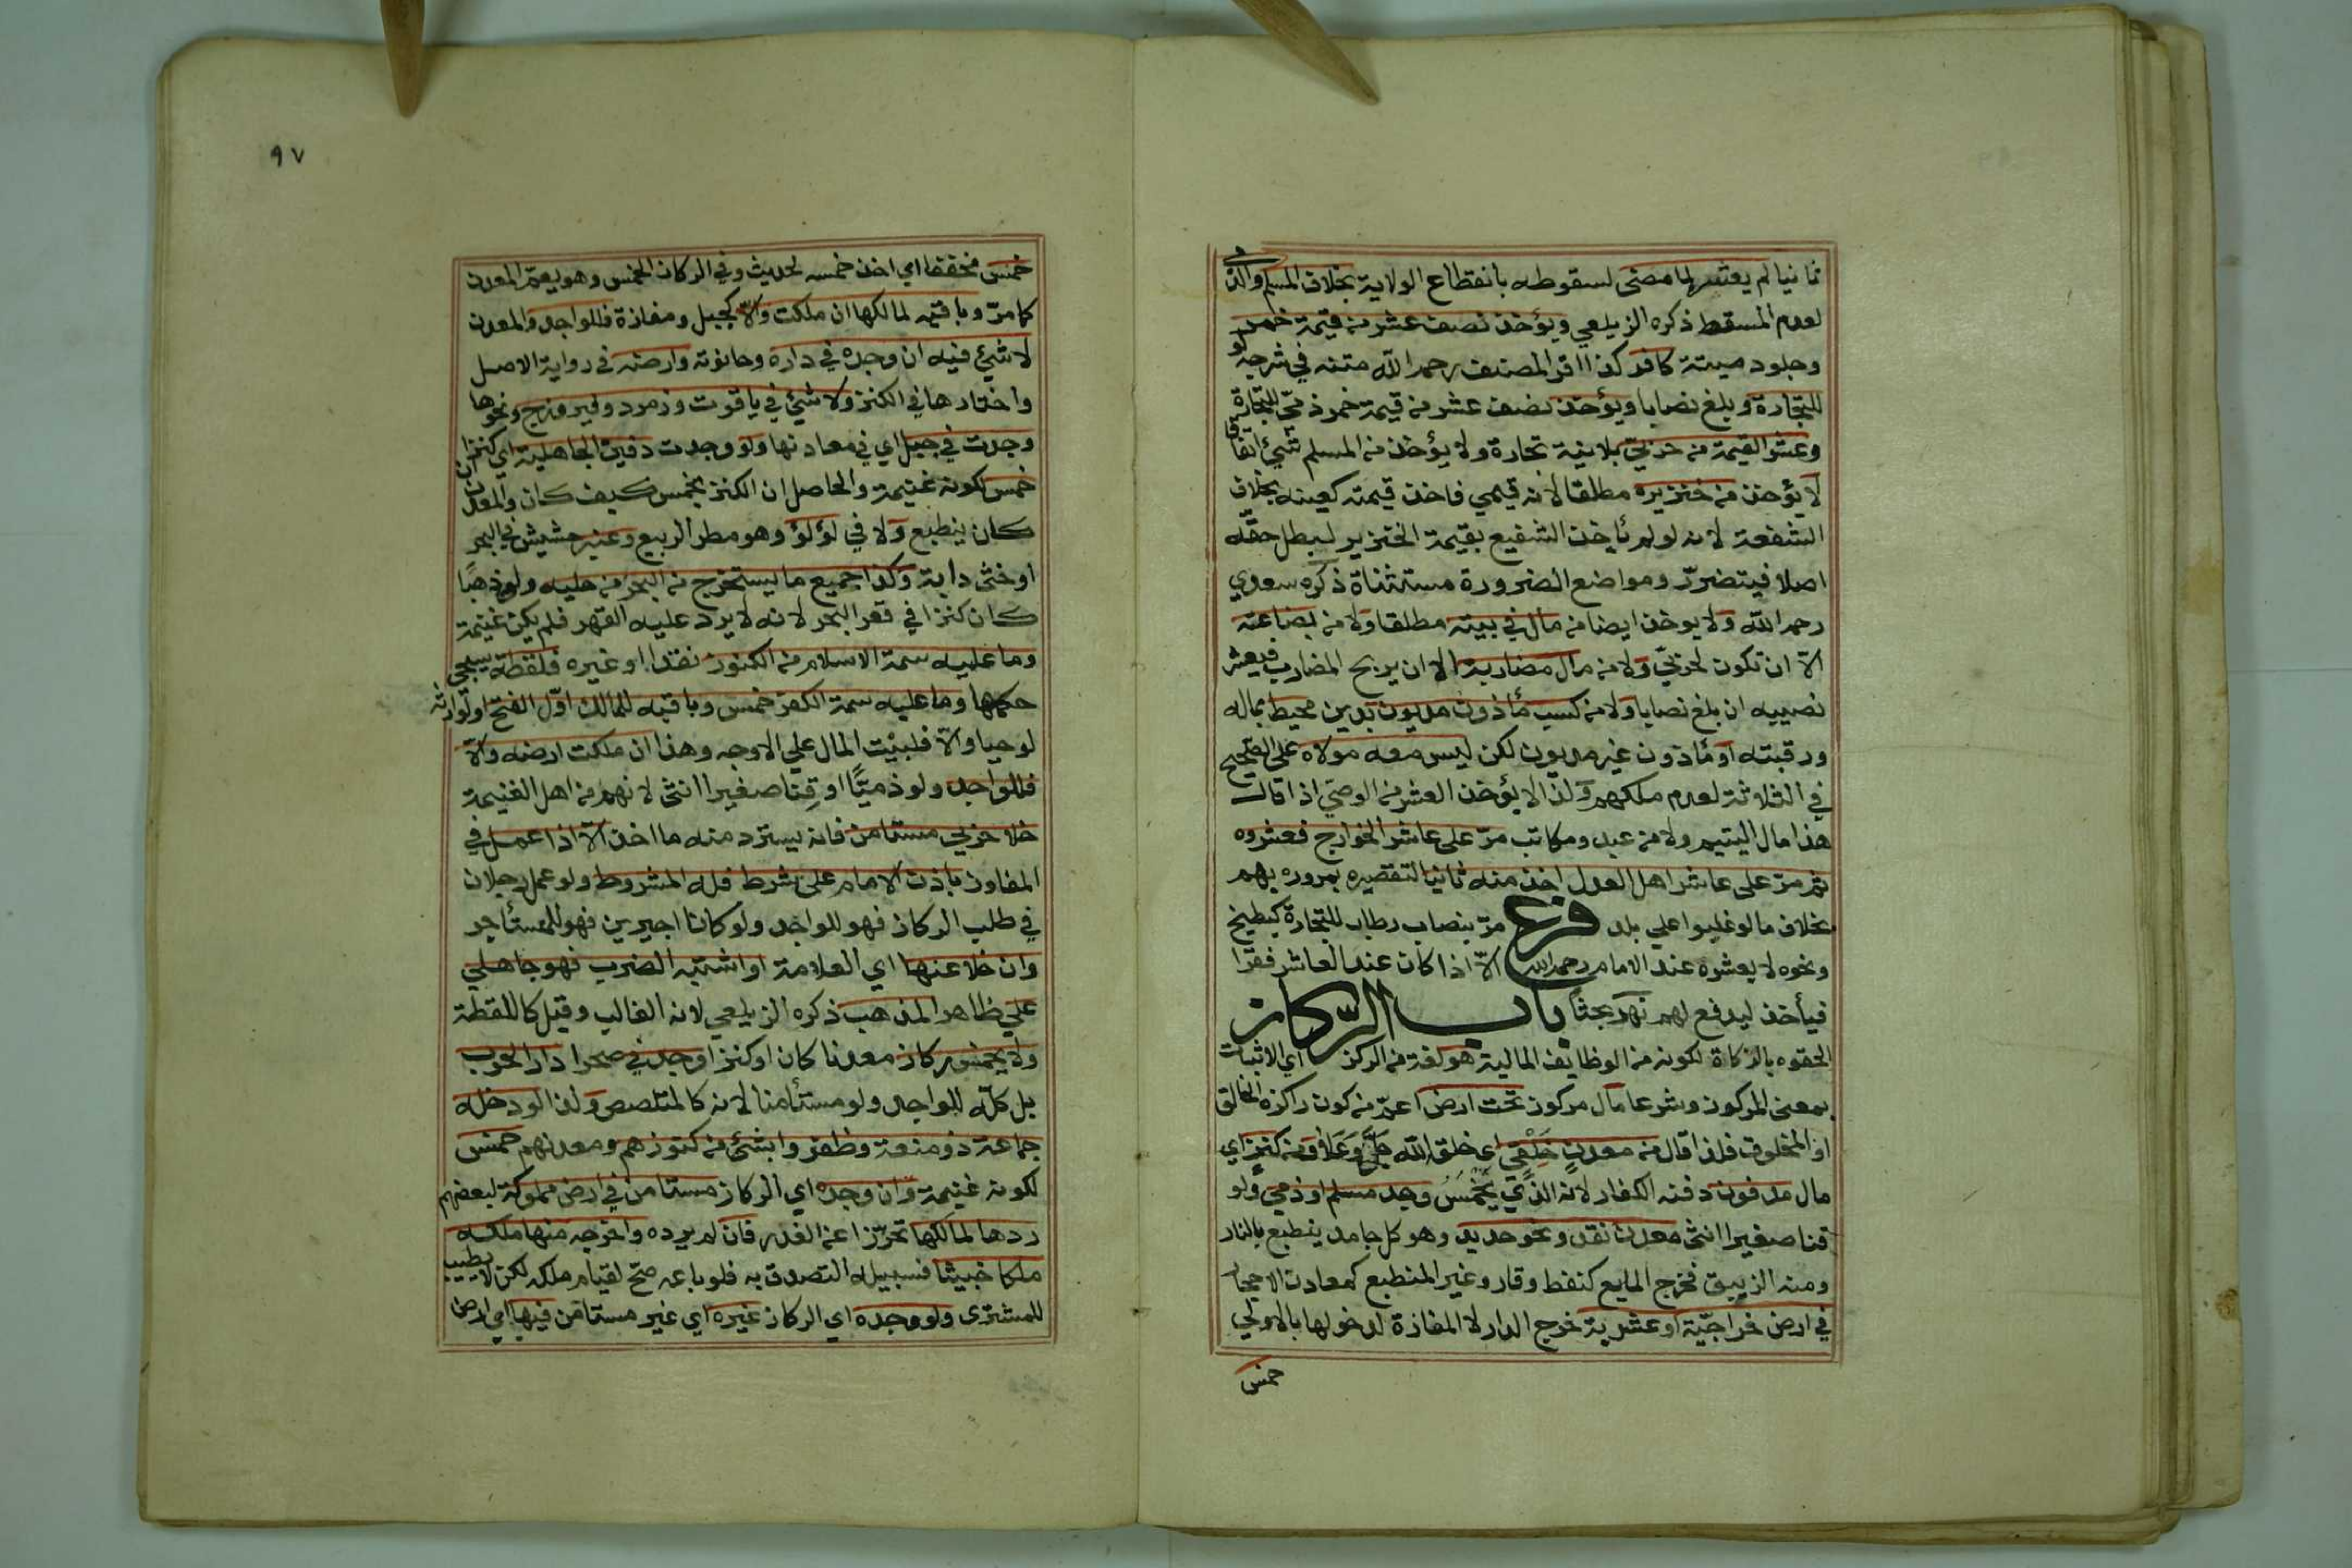 ثانيا لم يعشره لما مضى لسقوطه بانقطاع الولاية بخلاف المسلم والذمى
لعدم المسقط ذكره الزيلعي ويؤخذ نصف عشر من قيمة خمر
وجلود ميتة كافر كذا اقر المصنف رحمه الله متنه في شرحه لو
للتجارة وبلغ نصابا ويؤخذ نصف عشر من قيمة خمر ذمي للتجارة
وعشر القيمة من حربي بلا نية تجارة ولا يؤخذ من المسلم شيئ اتفاقا
لا يؤخذ من خنزيره مطلقا لانه قيمي فاخذ قيمته كعينه بخلاف
الشفعة لانه لو لم يأخذ الشفيع بقيمة الخنزير لبطل حقه
اصلا فيتضرر ومواضع الضرورة مستثناة ذكره سعدي
رحمه الله ولا يوخذ ايضا من مال في بيته مطلقا ولا من بضاعة
الا ان تكون لحربي ولا من مال مضاربة الا ان يربح المضارب فيعشر
نصيبه ان بلغ نصابا ولا من كسب مأذون مديون بدين محيط بماله
ورقبته او مأذون غير مديون لكن ليس معه مولاه على الصحيح
في الثلاثة لعدم ملكهم ولذا لا يؤخذ العشر من الوصي اذا قال
هذا مال اليتيم ولا من عبد ومكاتب مرّ على عاشر الخوارج فعشروه
ثم مر على عاشر اهل العدل اخذ منه ثانيا لتقصيره بمروره بهم
بخلاف ما لو غلبوا على بلد فرع مرّ بنصاب رطاب للتجارة كبطيخ
ونحوه لا يعشره عند الامام رحمه الله الا اذا كان عند العاشر فقرا
فيأخذ ليدفع لهم نهر بحثا باب الركاز
الحقوه بالزكاة لكونه من الوظايف المالية هو لغة من الركز اي الاثبات
بمعنى المركوز وشرعا مال مركوز تحت ارض اعم من كون راكزه الخالق
او المخلوق فلذا قال من معدن خلقي اي خلق الله جل وعلا ومن كنز اي
مال مدفون دفنه الكفار لانه الذي يخمس وجد مسلم او ذمي ولو
قنا صغيرا انثى معدن نقد ونحو حديد وهو كل جامد ينطبع بالنار
ومنه الزيبق فخرج المايع كنفط وقار وغير المنطبع كمعادن الاحجار
في ارض خراجية او عشرية خرج الدار لا المفازة لدخولها بالاولى
خمس
٩٧
خمس مخففا اي اخذ خمسه لحديث وفي الركاز الخمس وهو يعم المعدن
كما مرّ وباقيه لمالكها ان ملكت والا كجبل ومفازة فللواجد والمعدن
لا شيئ فيه ان وجده في داره وحانوته وارضه في رواية الاصل
واختارها في الكنز ولا شيئ في ياقوت وزمرد وفيروزج ونحوها
وجدت في جبل اي في معادنها ولو وجدت دفين الجاهلية اي كنزا
خمس لكونه غنيمة والحاصل ان الكنز يخمس كيف كان والمعدن ان
كان ينطبع ولا في لؤلؤ وهو مطر الربيع وعنبر حشيش في البحر
او خثى دابة وكذا جميع ما يستخرج من البحر من حليه ولو ذهبا
كان كنزا في قعر البحر لانه لا يرد عليه القهر فلم يكن غنيمة
وما عليه سمة الاسلام من الكنوز نقدا او غيره فلقطة سيجي
حكمها وما عليه سمة الكفر خمس وباقيه للمالك اول الفتح او لوارثه
لو حيا والا فلبيت المال على الاوجه وهذا ان ملكت ارضه والا
فللواجد ولو ذميا او قنا صغيرا انثى لانهم من اهل الغنيمة
خلا حربي مستامن فانه يسترد منه ما اخذ الا اذا عمل في
المفاوز باذن الامام على شرط فله المشروط ولو عمل رجلان
في طلب الركاز فهو للواجد ولو كانا اجيرين فهو للمستأجر
وان خلا عنها اي العلامة او اشتبه الضرب فهو جاهلي
على ظاهر المذهب ذكره الزيلعي لانه الغالب وقيل كاللقطة
ولا يخمس ركاز معدنا كان او كنزا وجد في صحرا دار الحرب
بل كله للواجد ولو مستأمنا لانه كالمتلصص ولذا لو دخله
جماعة ذو منعة وظفروا بشئ من كنوزهم ومعدنهم خمس
لكونه غنيمة وان وجده اي الركاز مستامن في ارض مملوكة لبعضهم
ردها لمالكها تحرزا عن الغدر فان لم يرده واخرجه منها ملكه
ملكا خبيثا فسبيله التصدق به فلو باعه صح لقيام ملكه لكن لا يطيب
للمشترى ولو وجده اي الركاز غيره اي غير مستامن فيها اي ارض